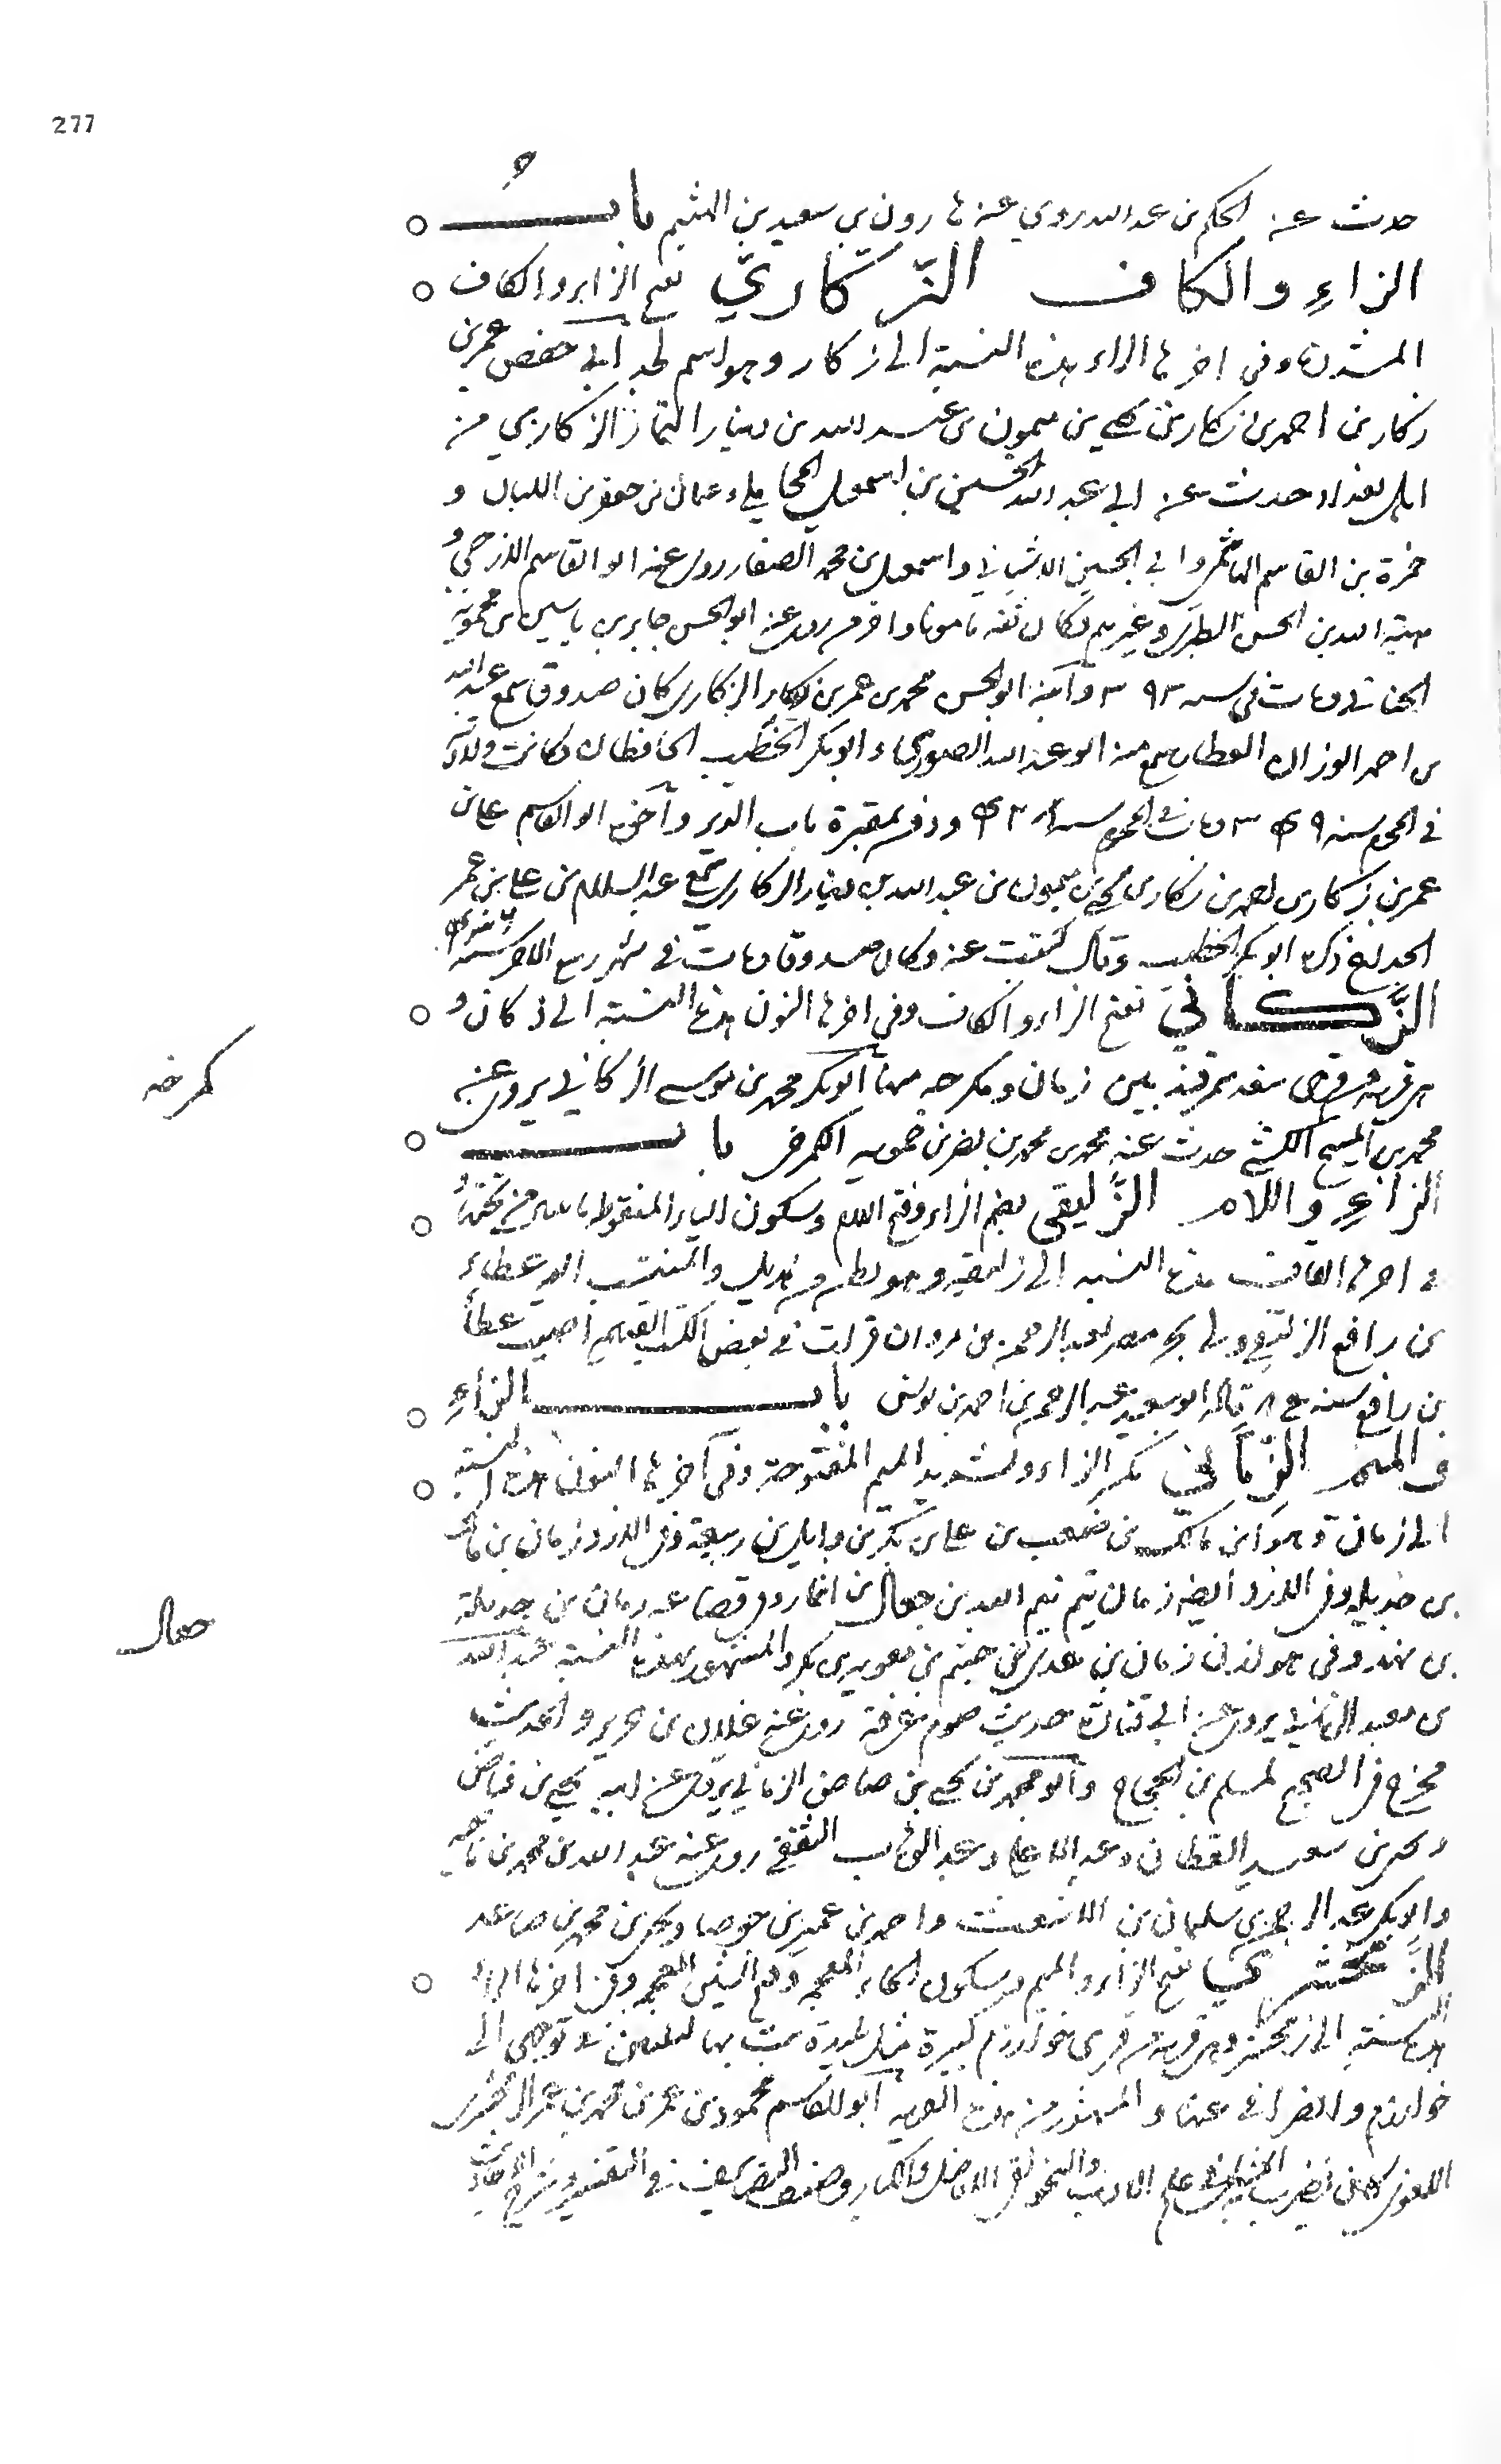 277
حدث عن الحكم بن عبد الله روى عنه هارون بن سعيد بن الهثيم باب
الزاءِ والكاف الزَّكّاريّ بفتح الزاء والكاف
المشددة وفي اخرها الراء هذه النسبة الى زكار وهو اسم لجد ابي حفص عمر بن
زكار بن احمد بن زكار بن يحيى بن ميمون بن عبد الله بن دينار التمار الزكاري من
اهل بغداد حدث عن ابي عبد الله الحسين بن اسمعيل المحاملي وعثمان بن جعفر بن اللبان و
حمزة بن القاسم الهاشمي وابي الحسين الاشناني واسمعيل بن محمد الصفار روى عنه ابو القاسم الازجي و
هبة الله بن الحسن الطبري وغيرهم وكان ثقة مامونا واخر من روى عنه ابو الحسن جابر بن ياسين بن محمويه
الحنائي ومات في سنة ٣٩٣ وابنه ابو الحسن محمد بن عمر بن زكار الزكاري كان صدوق سمع عبد الله
بن احمد الوزان العطار سمع منه ابو عبد الله الصوري وابو بكر الخطيب الحافظان وكانت ولادته
في المحرم سنة ومات في المحرم سنة ودفن بمقبرة باب الدير وأخوه ابو القاسم علي بن
عمر بن زكار بن احمد بن زكار بن يحيى بن ميمون بن عبد الله بن دينار الزكاري سمع عبد السلام بن علي بن عمر
ذكره ابو بكر الخطيب وقال كتبت عنه وكان صدوقا ومات في شهر ربيع الاخر سنة
الزَّكاني بفتح الزاء والكاف وفي اخرها النون هذه النسبة الى زكان و
هي قرية من قرى سغد سمرقند بين زمان وكمرجه منها ابو بكر محمد بن موسى الزكاني يروي عن
كمرجه
محمد بن المسيح الكشي حدث عنه محمد بن محمد بن نصر بن حمويه الكمرجي باب
الزاءِ واللام الزُّليقي بضم الزاء وفتح اللام وسكون الياء المنقوطة باثنين من تحتها و
في اخرها القاف هذه النسبة الى زليقة وهو بطن من هذيل والمنتسب اليه عطاء
بن رافع الزليقي ولي بحر مصر لعبد الرحمن بن مروان قرات في بعض الكتب القديمة اصيب عطا
بن رافع سنة قاله ابو سعيد عبد الرحمن بن احمد بن يونس باب الزاءِ
والميم الزِّمّاني بكسر الزاء وتشديد الميم المفتوحة وفي آخرها النون هذه النسبة
الى زمان وهو ابن مالك بن صعب بن علي بن بكر بن وايل بن ربيعة وفي الازد زمان بن مالك
بن جديلة وفي الازد ايضا زمان بن تيم الله بن جعال بن انمار وفي قضاعة زمان بن جديلة
جعال
بن نهد وفي هوازن زمان بن عدي بن جشم بن معوية بن بكر والمشهور بهذه النسبة عبد الله
بن معبد الزماني يروي عن ابي قتادة حديث صوم عرفة روى عنه غيلان بن جرير والحديث
مخرج في الصحيح لمسلم بن الحجاج وابو محمد بن يحيى بن فياض الزماني يروي عن ابيه يحيى بن فياض
ويحيى بن سعيد القطان وعبد الاعلى وعبد الوهاب الثقفي روى عنه عبد الله بن محمد بن ناجية
وابو بكر عبد الله بن سليمان بن الاشعث واحمد بن عمير بن جوصا ويحيى بن محمد بن صاعد
الزَّمَخْشَري بفتح الزاء والميم وسكون الخاء المعجمة وفتح الشين المعجمة وفي اخرها الراء
هذه النسبة الى زمخشر وهي قرية من قرى خوارزم كبيرة مثل بليدة بت بها ليلتين في توجهي الى
خوارزم وانصرافي عنها والمشهور من هذه القرية ابو القاسم محمود بن عمر بن محمد بن عمر الزمخشري
اللغوي كان يضرب به المثل في علم الادب والنحو لقي الافاضل والكبار وصنف التصانيف في التفسير وشرح الاحاديث